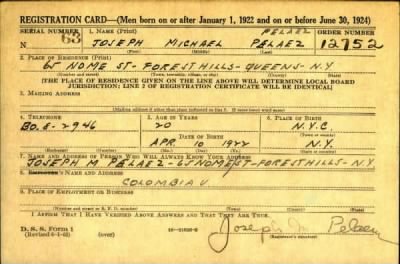 REGISTRATION CARD—(Men born on or after January 1, 1922 and on or before June 30, 1924)
SERIAL NUMBER 1. NAME (Print) PELAEZ ORDER NUMBER
N 63 JOSEPH MICHAEL PELAEZ 12752
(First) (Middle) (Last)
2. PLACE OF RESIDENCE (Print)
65 NOME ST- FOREST HILLS- QUEENS- N.Y
(Number and street) (Town, township, village, or city) (County) (State)
[THE PLACE OF RESIDENCE GIVEN ON THE LINE ABOVE WILL DETERMINE LOCAL BOARD
JURISDICTION; LINE 2 OF REGISTRATION CERTIFICATE WILL BE IDENTICAL]
3. MAILING ADDRESS
(Mailing address if other than place indicated on line 2. If same insert word same)
4. TELEPHONE 5. AGE IN YEARS 6. PLACE OF BIRTH
BO. 8- 2946 20 N.Y.C.
DATE OF BIRTH (Town or county)
APR 10 1922 N.Y.
(Exchange) (Number) (Mo.) (Day) (Yr.) (State or country)
7. NAME AND ADDRESS OF PERSON WHO WILL ALWAYS KNOW YOUR ADDRESS
JOSEPH M PELAEZ- 65 NOME ST- FOREST HILLS- N.Y.
8. EMPLOYER'S NAME AND ADDRESS
COLOMBIA U.
9. PLACE OF EMPLOYMENT OR BUSINESS
(Number and street or R. F. D. number) (Town) (County) (State)
I AFFIRM THAT I HAVE VERIFIED ABOVE ANSWERS AND THAT THEY ARE TRUE.
D. S. S. Form 1
(Revised 6-1-42) (over) Joseph M. Pelaez
(Registrant's signature)